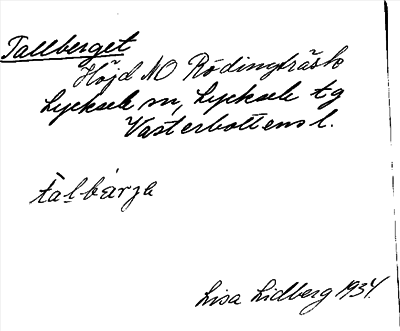 Tallberget
Höjd NO Rödingträsk
Lycksele sn, Lycksele tg
Västerbottens l.
talbærja
Lisa Lidberg 1934.